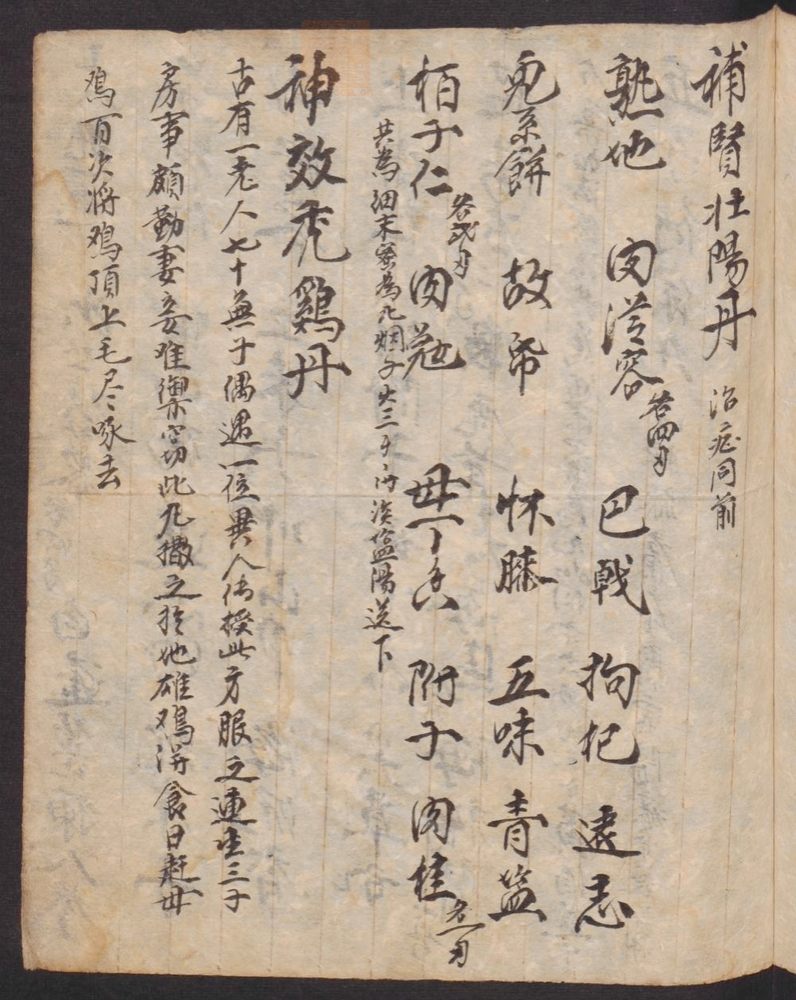 補賢壯陽丹 治症同前
熟地 肉苁容 各四刄 巴戟 拘杞 遠志
兎系餅 故帋 怀膝 五味 青盐
栢子仁 各弍刄 肉蔻 毋丁香 附子 肉桂 各一刄
共為细末蜜為丸桐子大三十丸淡盐湯送下
神效秃鷄丹
古有一老人七十無子偶遇一位異人传授此方服之連生三子
房事頗勤妻妾难禦窃此丸撒之於地雄鸡浒食日赶母
鸡百次将鸡頂上毛尽啄去